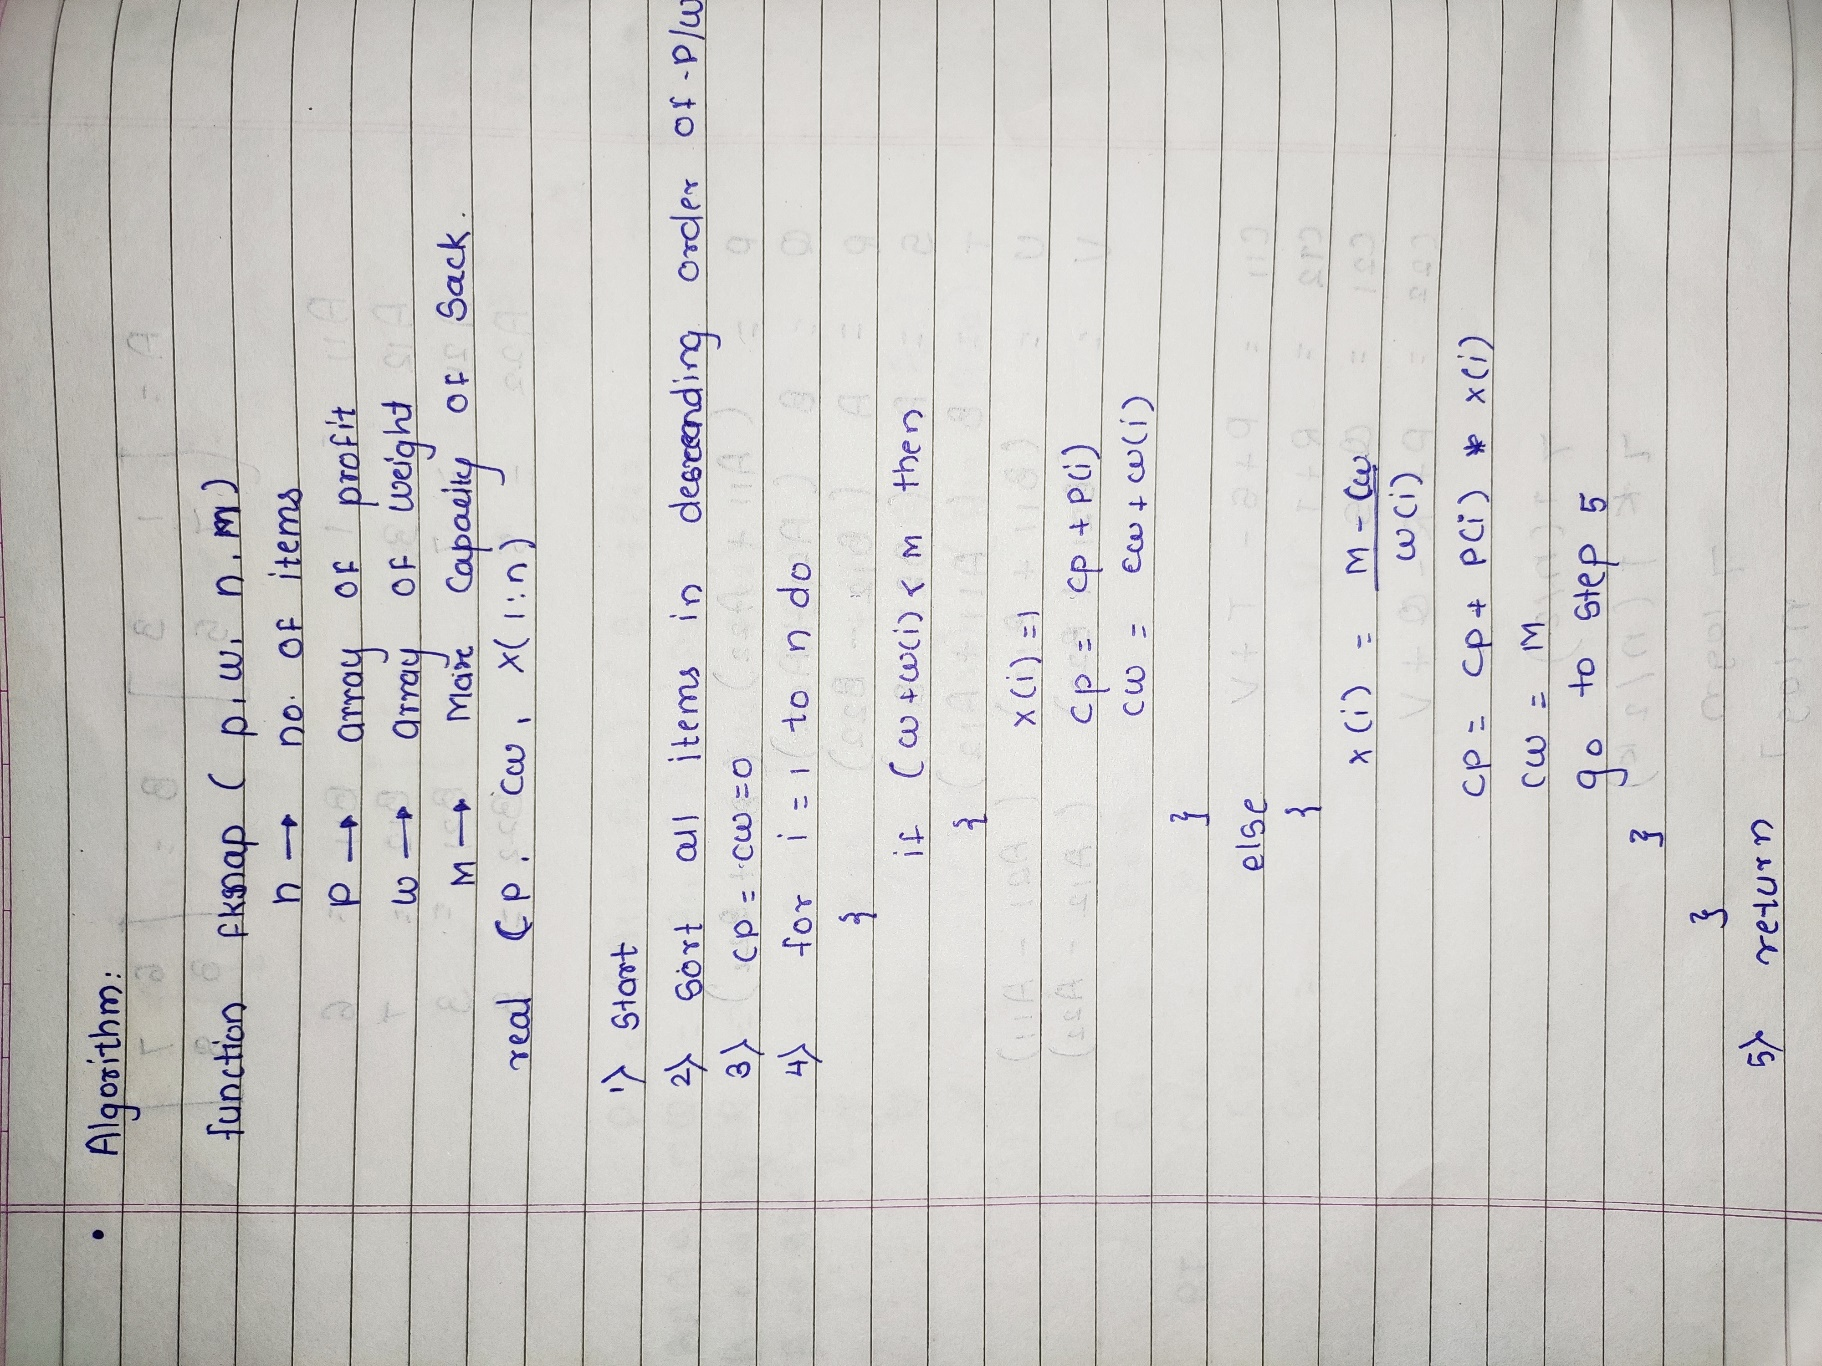 • Algorithm:
function fknap ( p, w, n, m )
n → no. of items
p → array of profit
w → array of weight
M → Max capacity of Sack.
real Cp, Cw, x(1:n)
1) Start
2) Sort all items in descending order of P/W
3) Cp = cw = 0
4) for i = 1 to n do
{
if (w+w(i) < M then
{
x(i) = 1
Cp = cp + p(i)
cw = cw + w(i)
}
else
{
x(i) = M - Cw
w(i)
CP = CP + P(i) * x(i)
Cw = M
go to Step 5
}
}
5) return